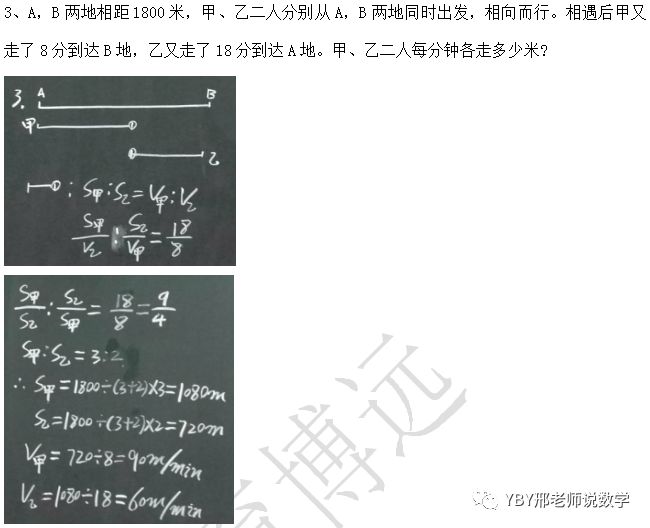 3、A，B 两地相距1800 米，甲、乙二人分别从 A，B 两地同时出发，相向而行。相遇后甲又
走了 8 分到达 B 地，乙又走了 18 分到达 A 地。甲、乙二人每分钟各走多少米?
3. A B
甲 ①
① 乙
①: S甲:S乙=V甲:V乙
S甲/V乙 : S乙/V甲 = 18/8
S甲/S乙 : S乙/S甲 = 18/8 = 9/4
S甲:S乙=3:2
∴ S甲=1800÷(3+2)×3=1080m
S乙=1800÷(3+2)×2=720m
V甲=720÷8=90m/min
V乙=1080÷18=60m/min
博远
YBY邢老师说数学